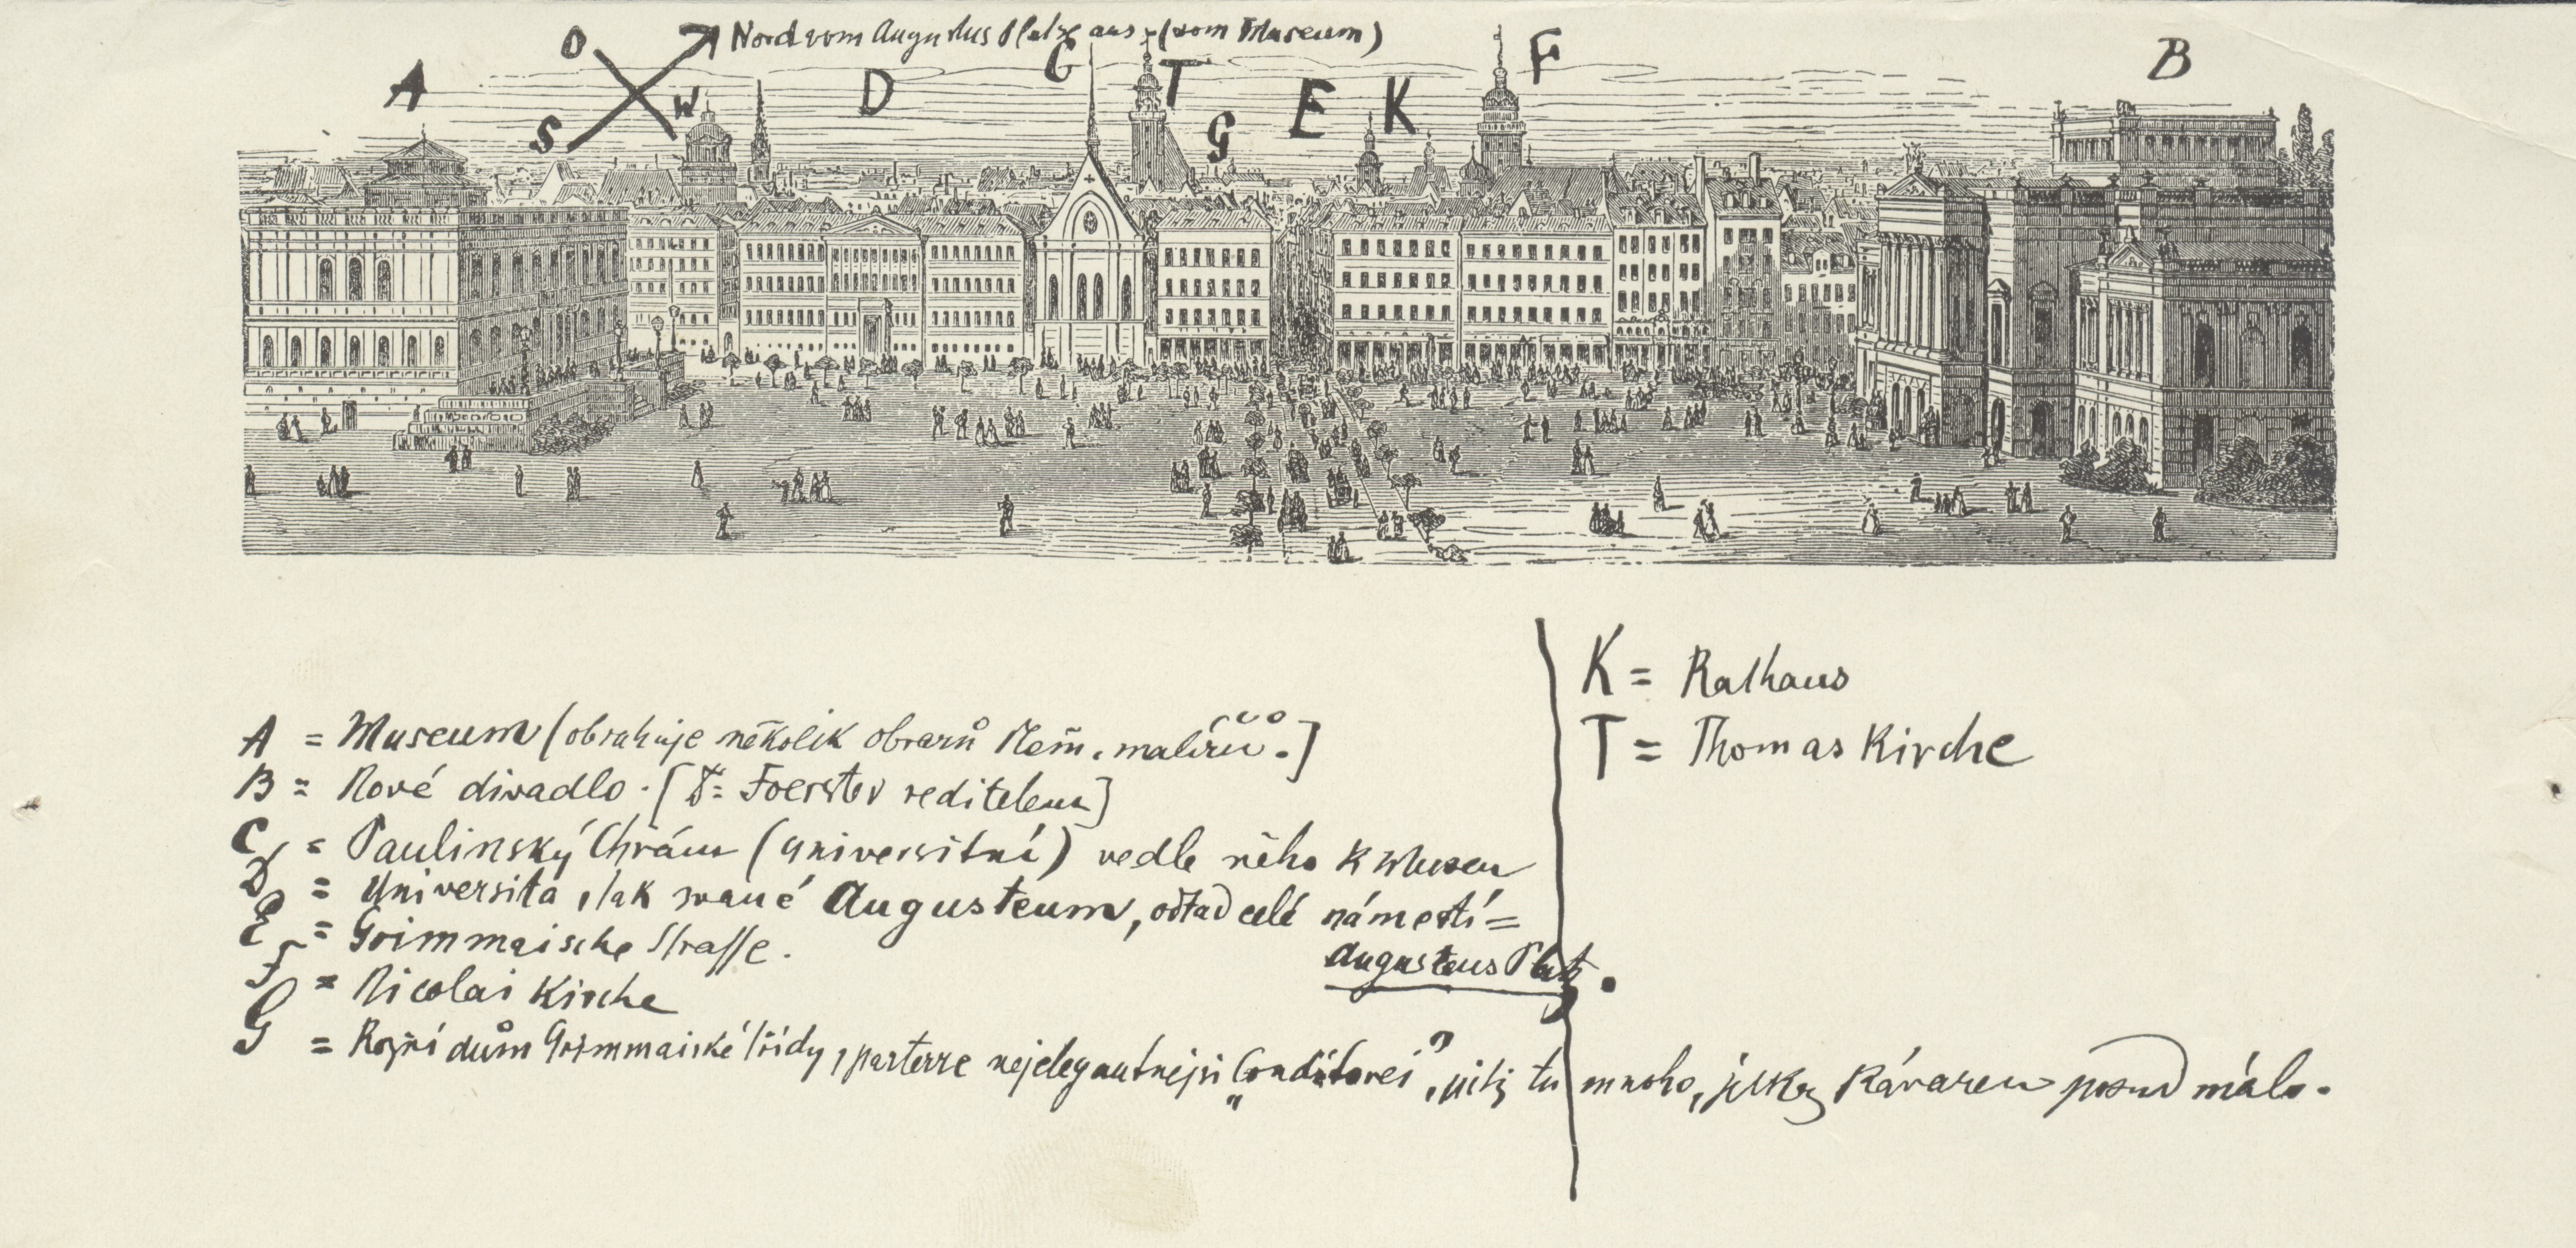 Nord vom Augustus Platze aus (vom Museum)
O
W
S
A
D
C
T
G
E
K
F
B
A = Museum (obsahuje několik obrazů Něm. malířů.]
B = Nové divadlo. [D: Foerster reditelem]
C = Paulinský Chrám (universitní) vedle něho k Museu
D = Universita, tak zvané Augusteum, odtad celé náměstí =
Augusteus Platz.
E = Grimmaische Strasse.
F = Nicolai Kirche
G = Rožní dům Grimmaiské třídy, parterre nejelegantnejsi "Conditorei", jichž tu mnoho, jelikož kávaren posud málo.
K = Rathaus
T = Thomas Kirche